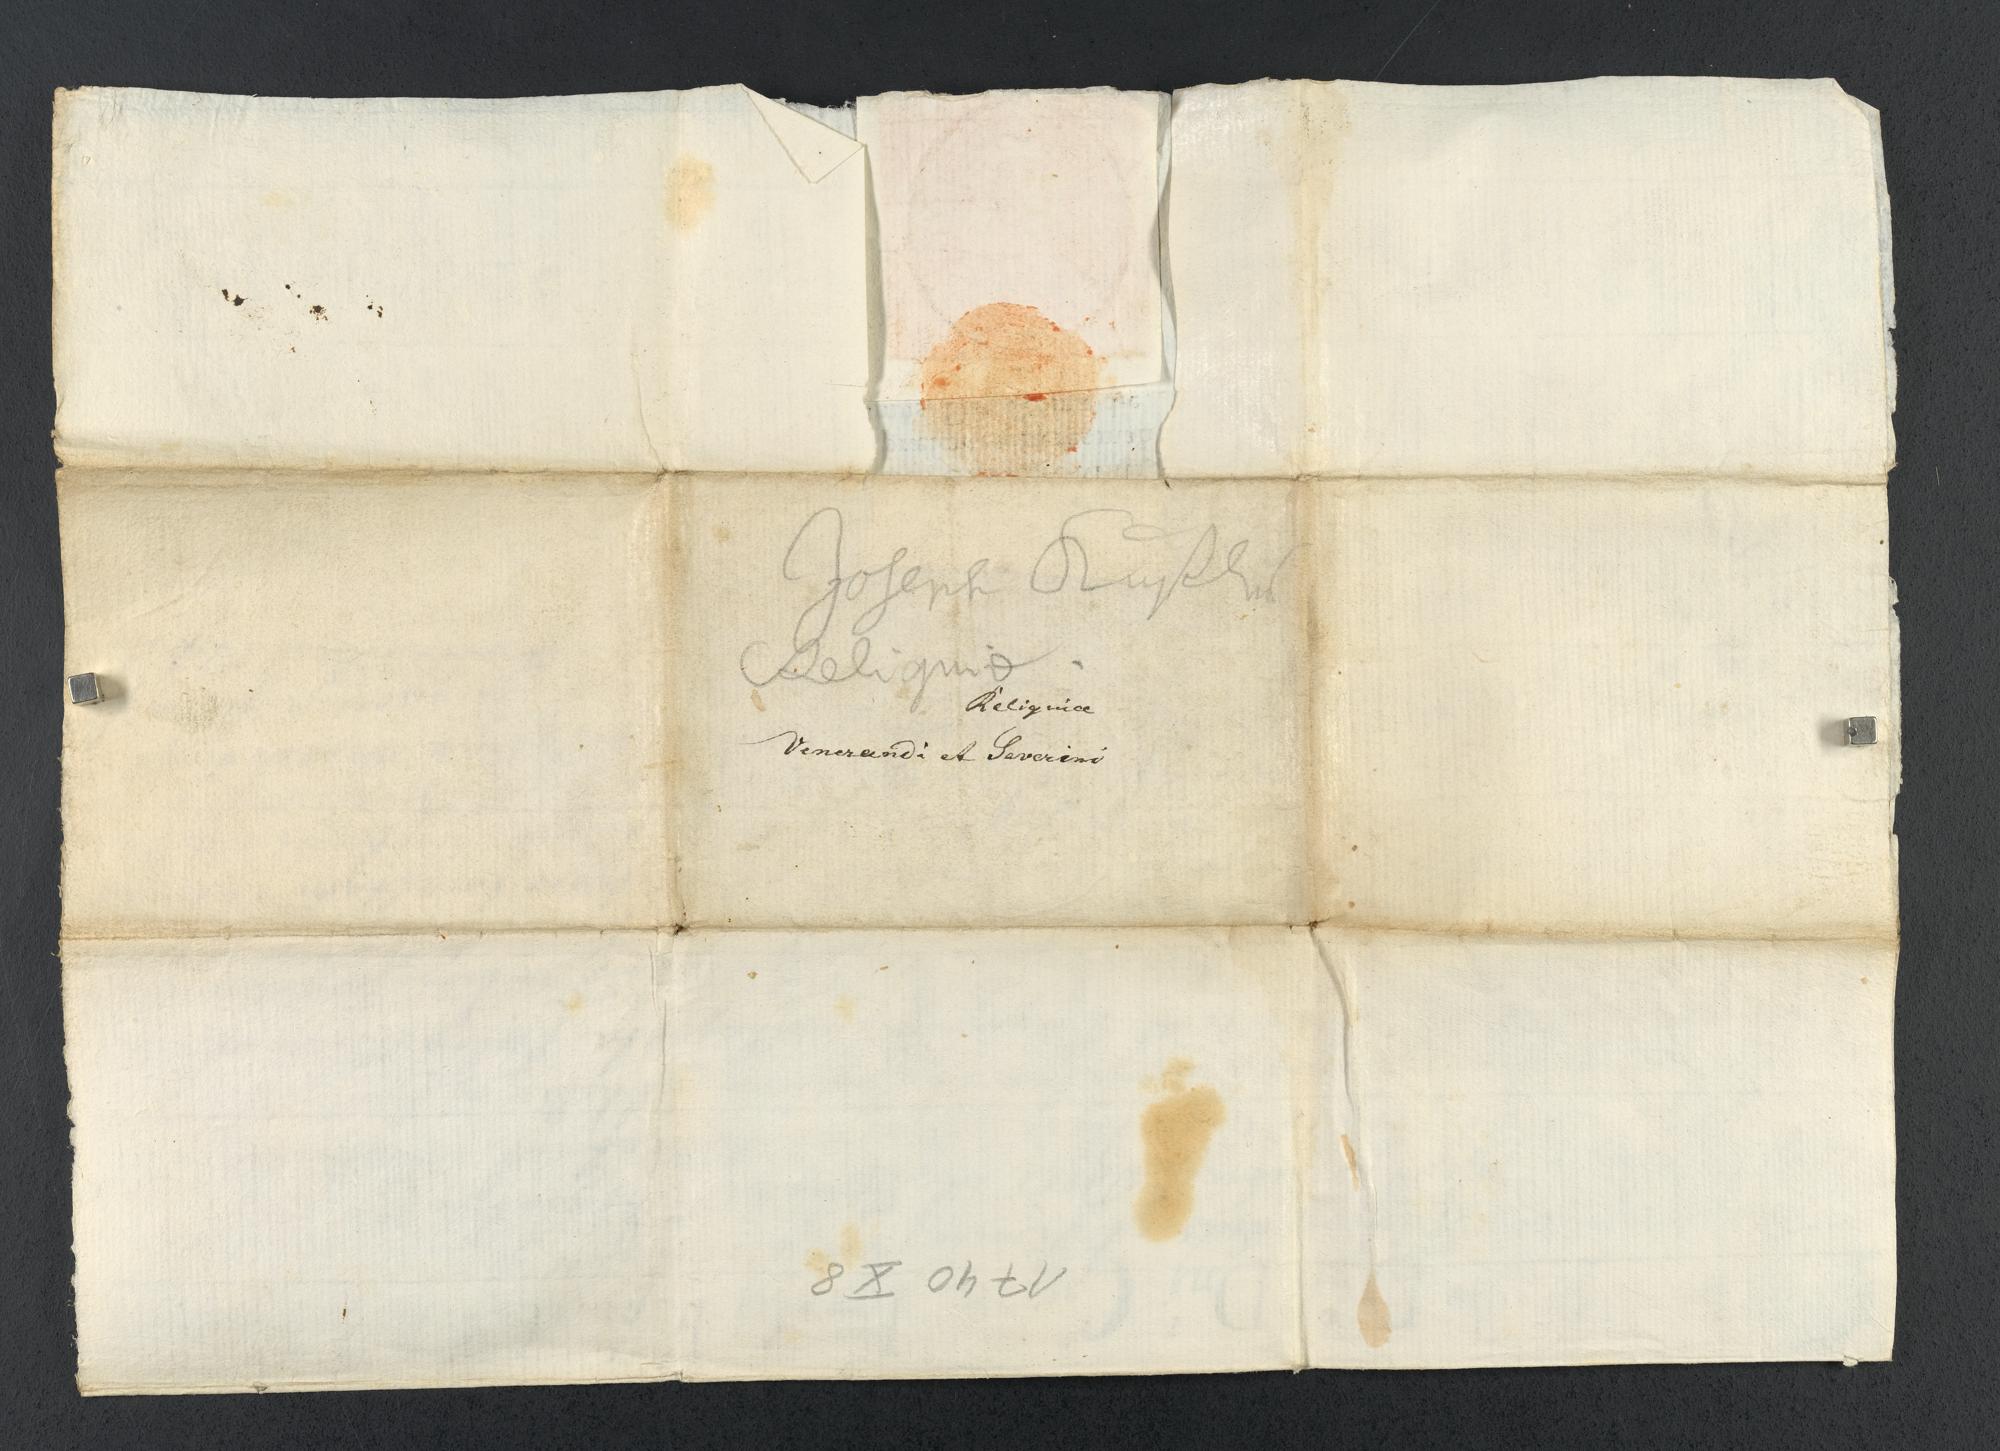 Joseph
Reliquiæ
Reliquiæ
Venerandi et Severini
1740 X 8